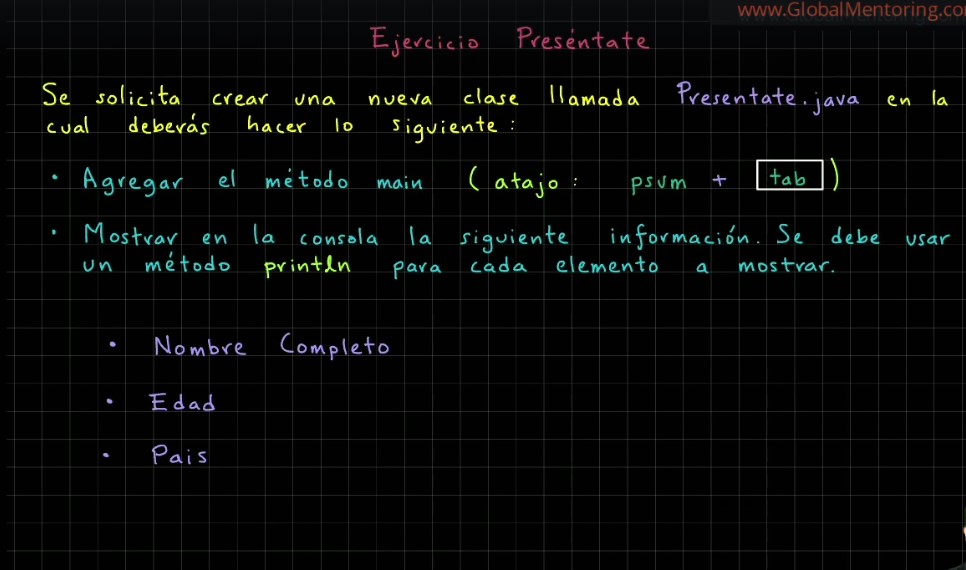 www.GlobalMentoring.co
Ejercicio Preséntate
Se solicita crear una nueva clase llamada Presentate.java en la
cual deberás hacer lo siguiente:
• Agregar el método main (atajo: psvm + tab)
• Mostrar en la consola la siguiente información. Se debe usar
un método println para cada elemento a mostrar.
• Nombre Completo
• Edad
• Pais